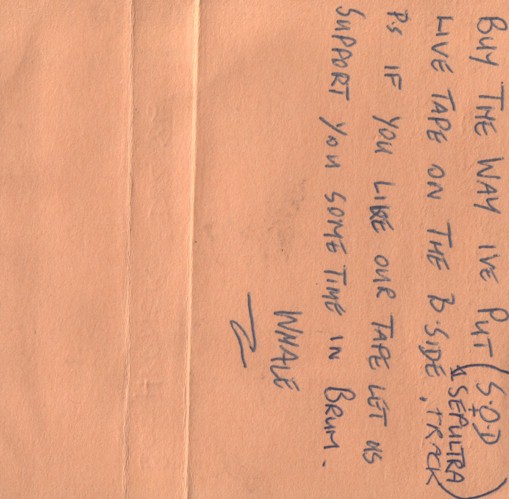 BUY THE WAY I'VE PUT (S.O.D
& SEPULTRA TRACK)
LIVE TAPE ON THE B SIDE.
P.S IF YOU LIKE OUR TAPE LET US
SUPPORT YOU SOME TIME IN BRUM.
WHALE